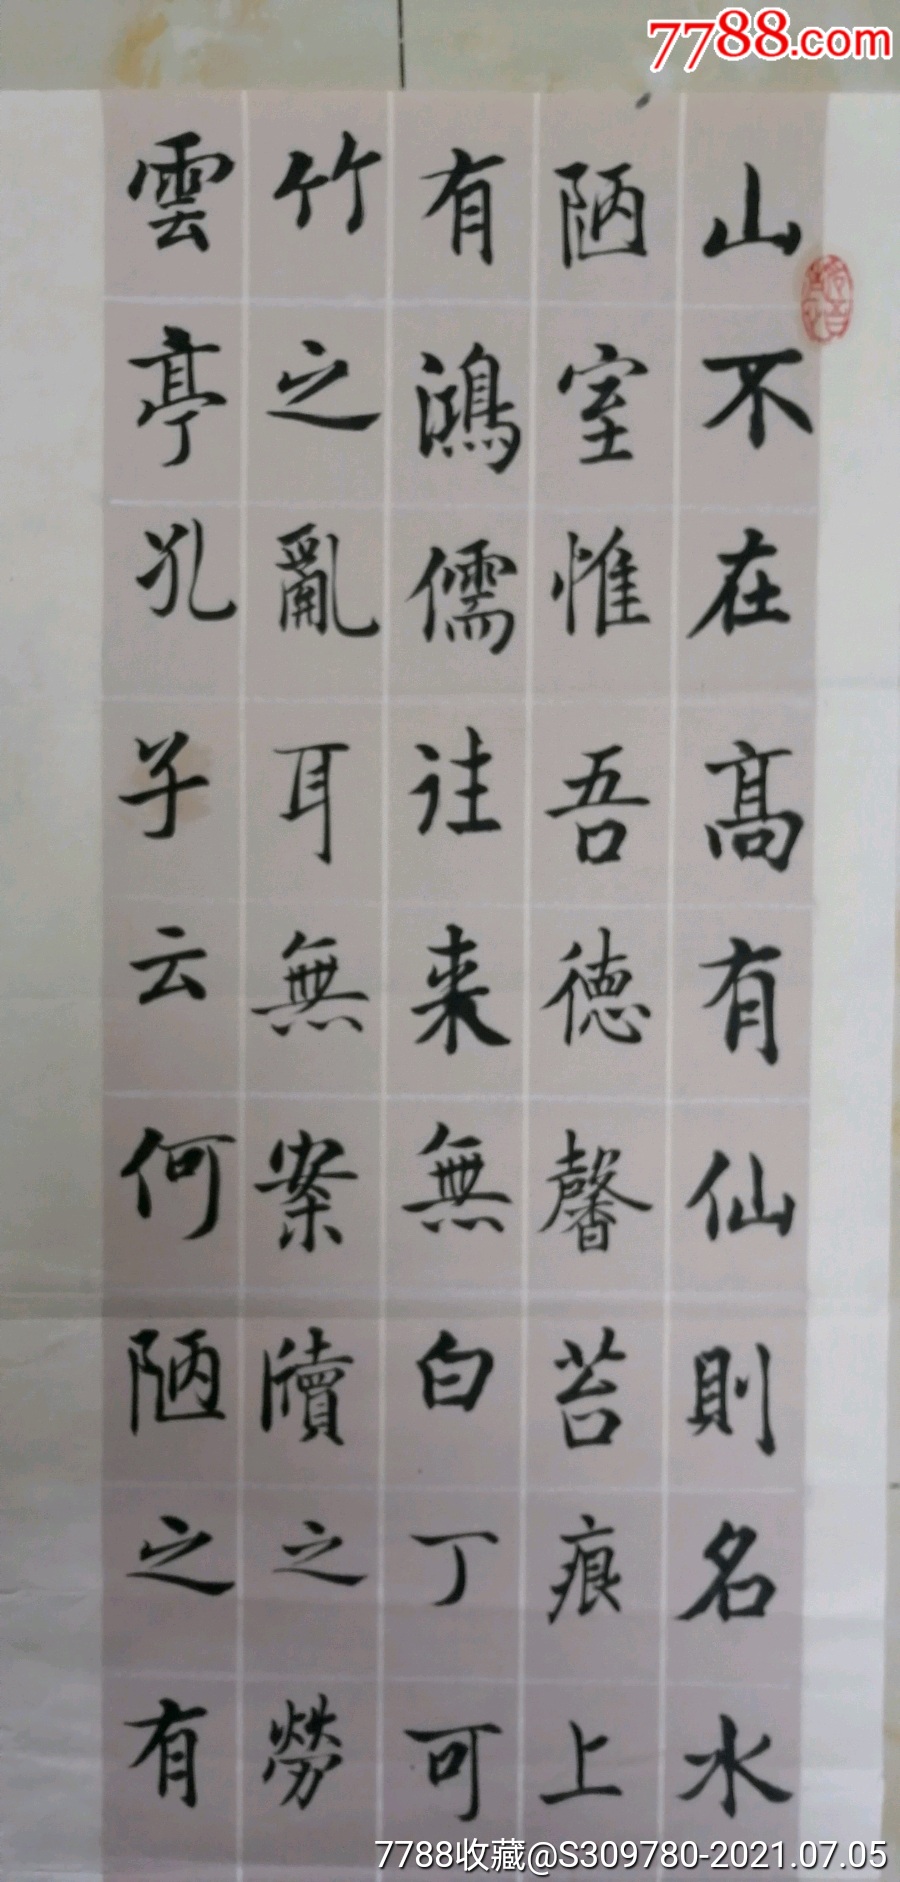 7788.com
山不在高有仙則名水
陋室惟吾德馨苔痕上
有鴻儒往来無白丁可
竹之亂耳無案牘之勞
雲亭孔子云何陋之有
7788收藏@S309780-2021.07.05